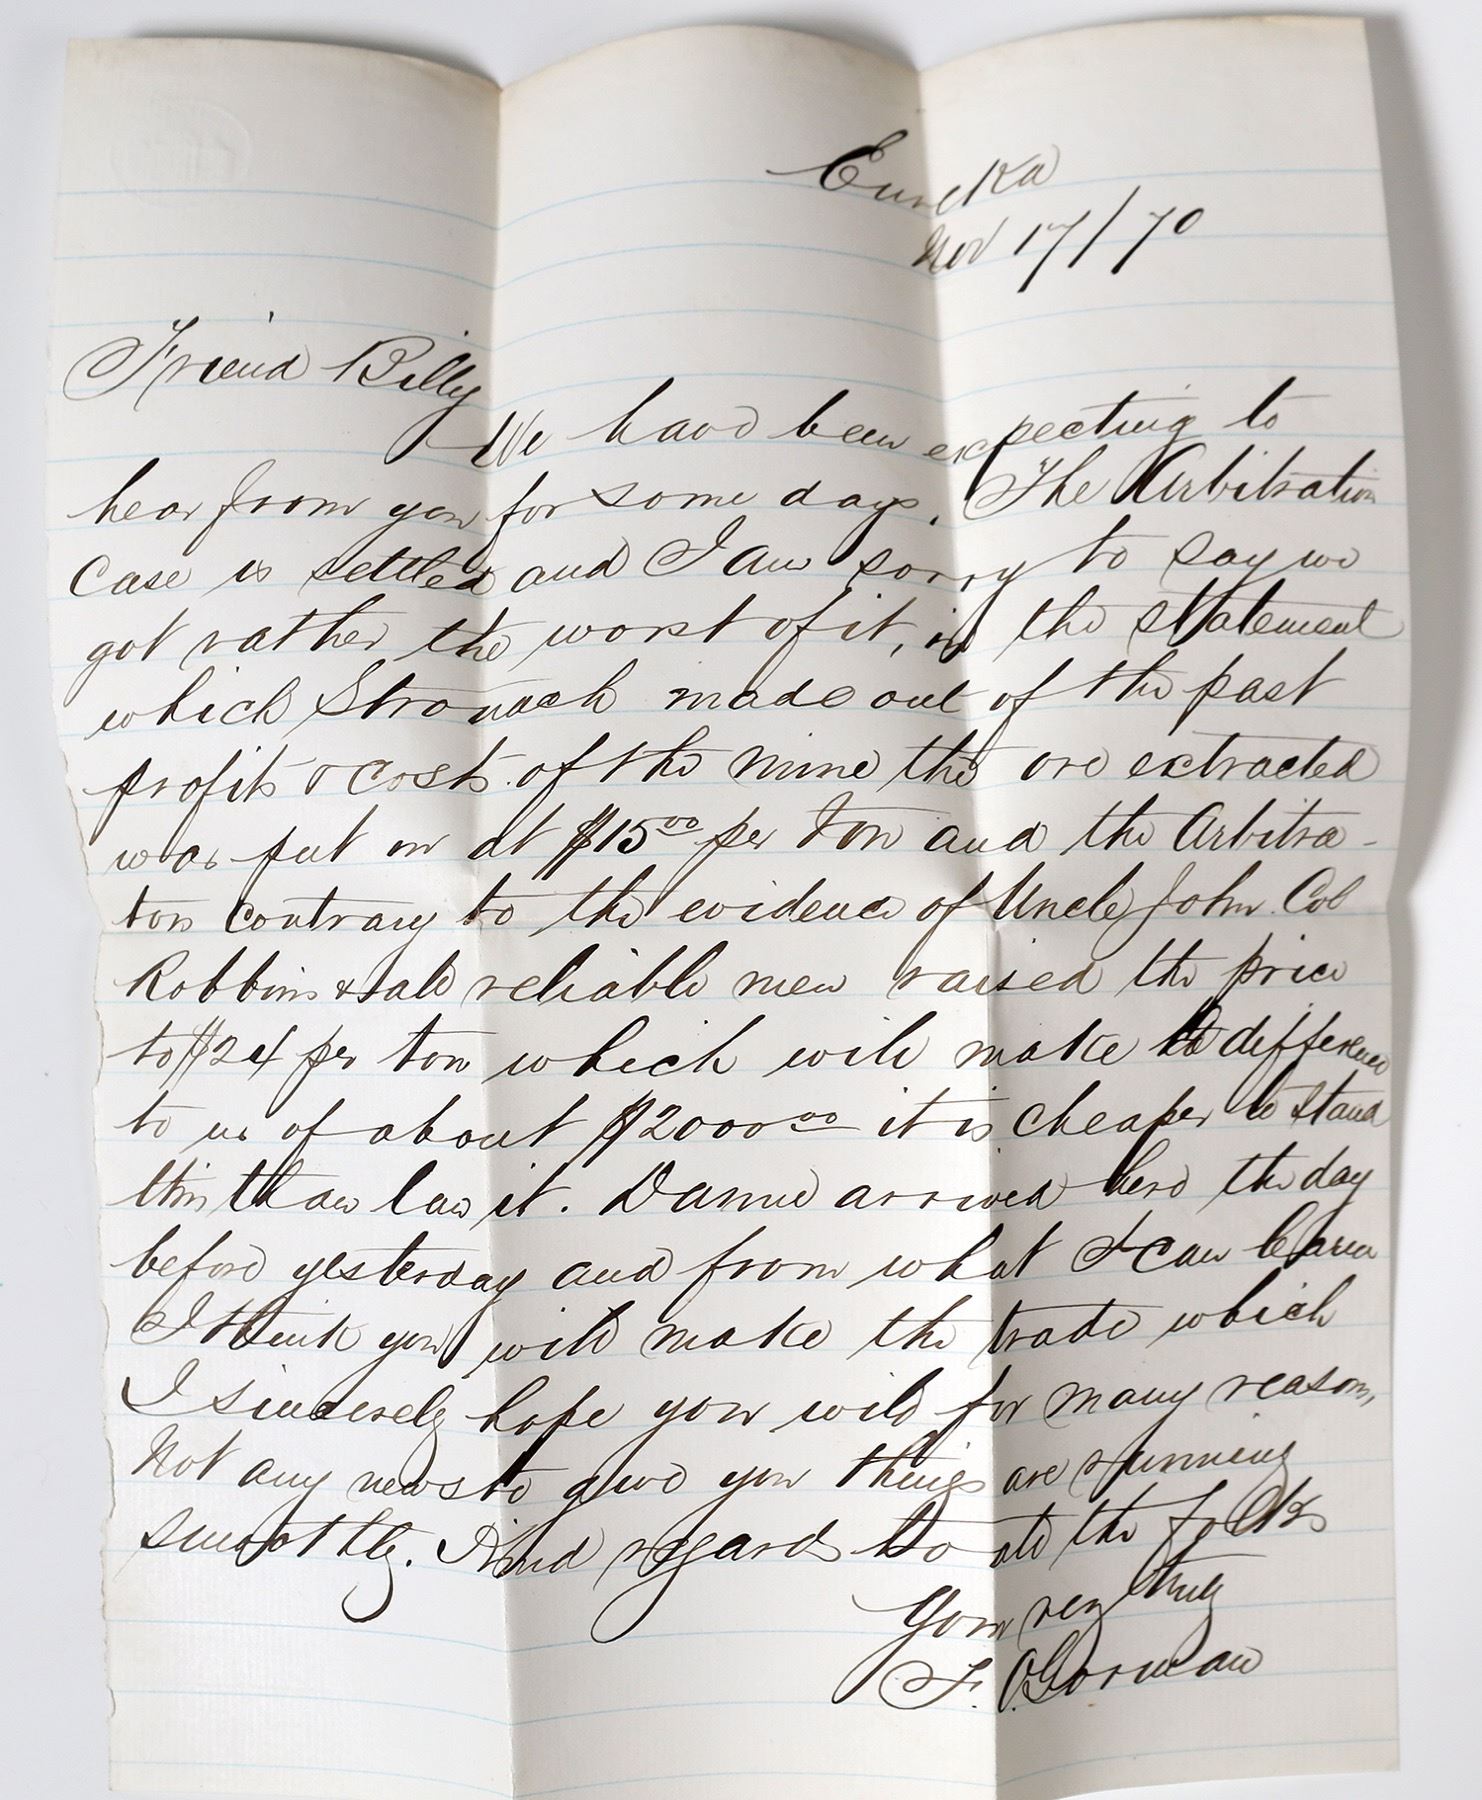 Eureka
Nov 17/70
Friend Billy
We have been expecting to
hear from you for some days. The Arbitration
Case is settled and I am sorry to say we
got rather the worst of it, in the statement
which Stronach made out of the past
profits & costs of the mine the ore extracted
was put in at $1500 per ton and the Arbitra-
tors contrary to the evidence of Uncle John Col
Robbins & all reliable men raised the price
to $24 per ton which will make a difference
to us of about $200000 it is cheaper to stand
this than law it. Dannie arrived here the day
before yesterday and from what I can learn
I think you will make the trade which
I sincerely hope you will for many reasons,
Not any news to give you things are running
smoothly. Kind regards to all the folks
Yours very truly
F. O.Gorman